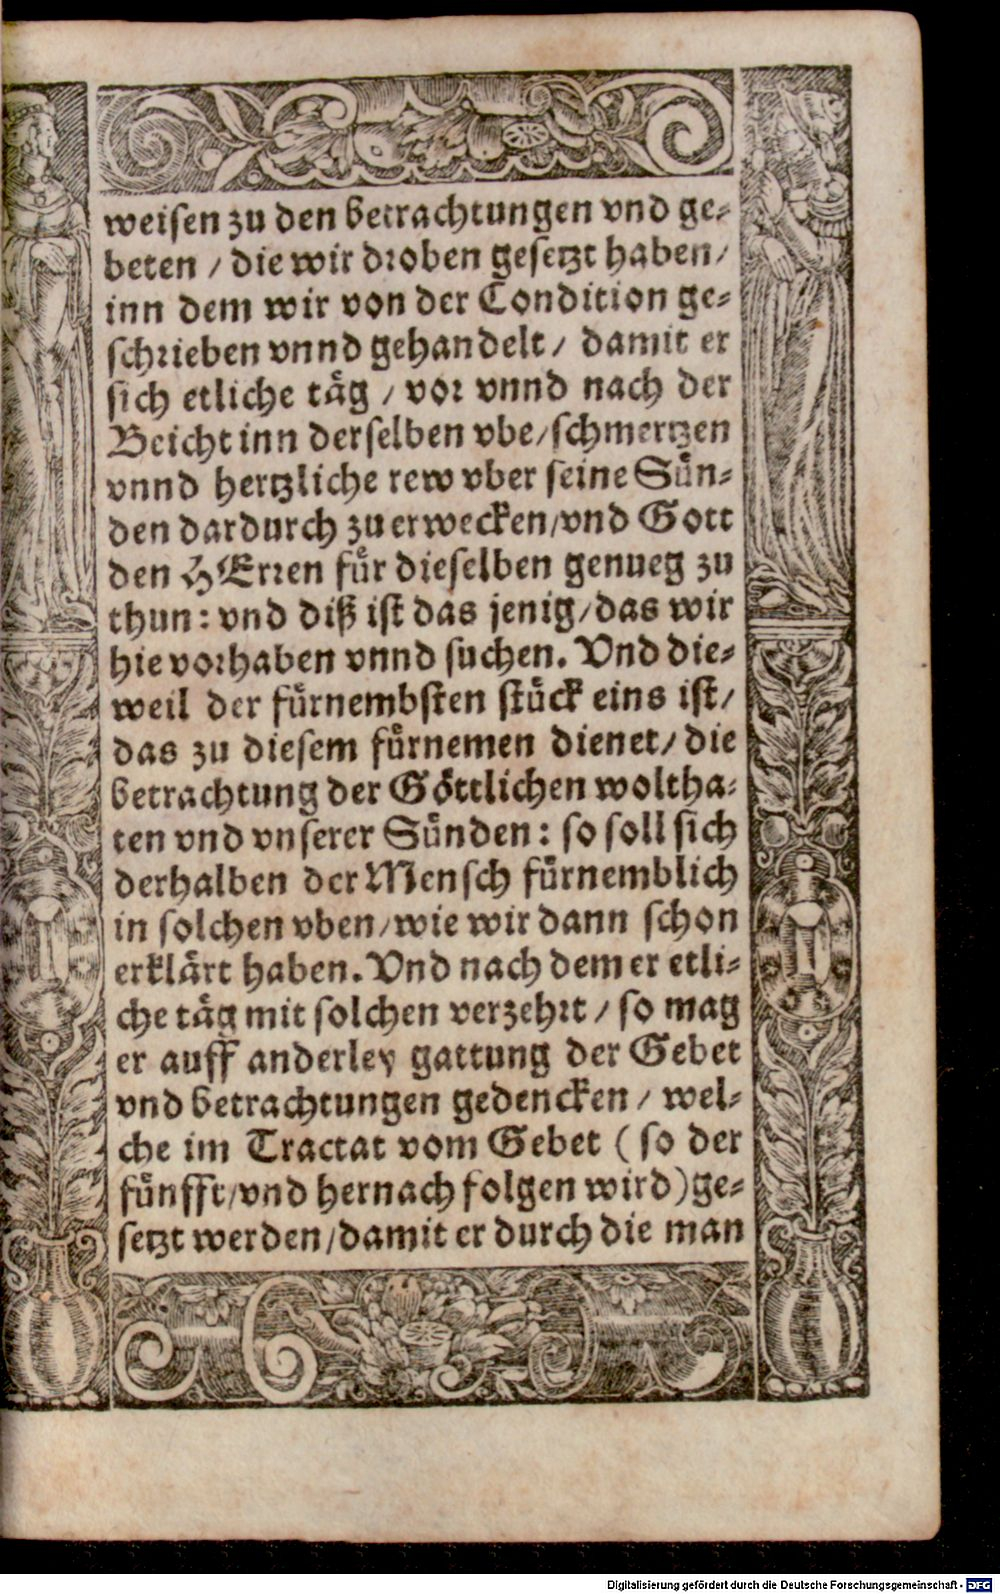 weisen zu den betrachtungen vnd ge-
beten / die wir droben gesetzt haben/
inn dem wir von der Condition ge-
schrieben vnnd gehandelt / damit er
sich etliche täg / vor vnnd nach der
Beicht inn derselben vbe/schmertzen
vnnd hertzliche rew vber seine Sün-
den dardurch zu erwecken/vnd Gott
den HErren für dieselben genueg zu
thun: vnd diß ist das jenig/das wir
hie vorhaben vnnd suchen. Vnd die-
weil der fürnembsten stück eins ist/
das zu diesem fürnemen dienet/ die
betrachtung der Göttlichen woltha-
ten vnd vnserer Sünden: so soll sich
derhalben der Mensch fürnemblich
in solchen vben/wie wir dann schon
erklärt haben. Vnd nach dem er etli-
che täg mit solchen verzehrt / so mag
er auff anderley gattung der Gebet
vnd betrachtungen gedencken / wel-
che im Tractat vom Gebet (so der
fünfft/vnd hernach folgen wird) ge-
setzt werden/damit er durch die man
Digitalisierung gefördert durch die Deutsche Forschungsgemeinschaft - DFG